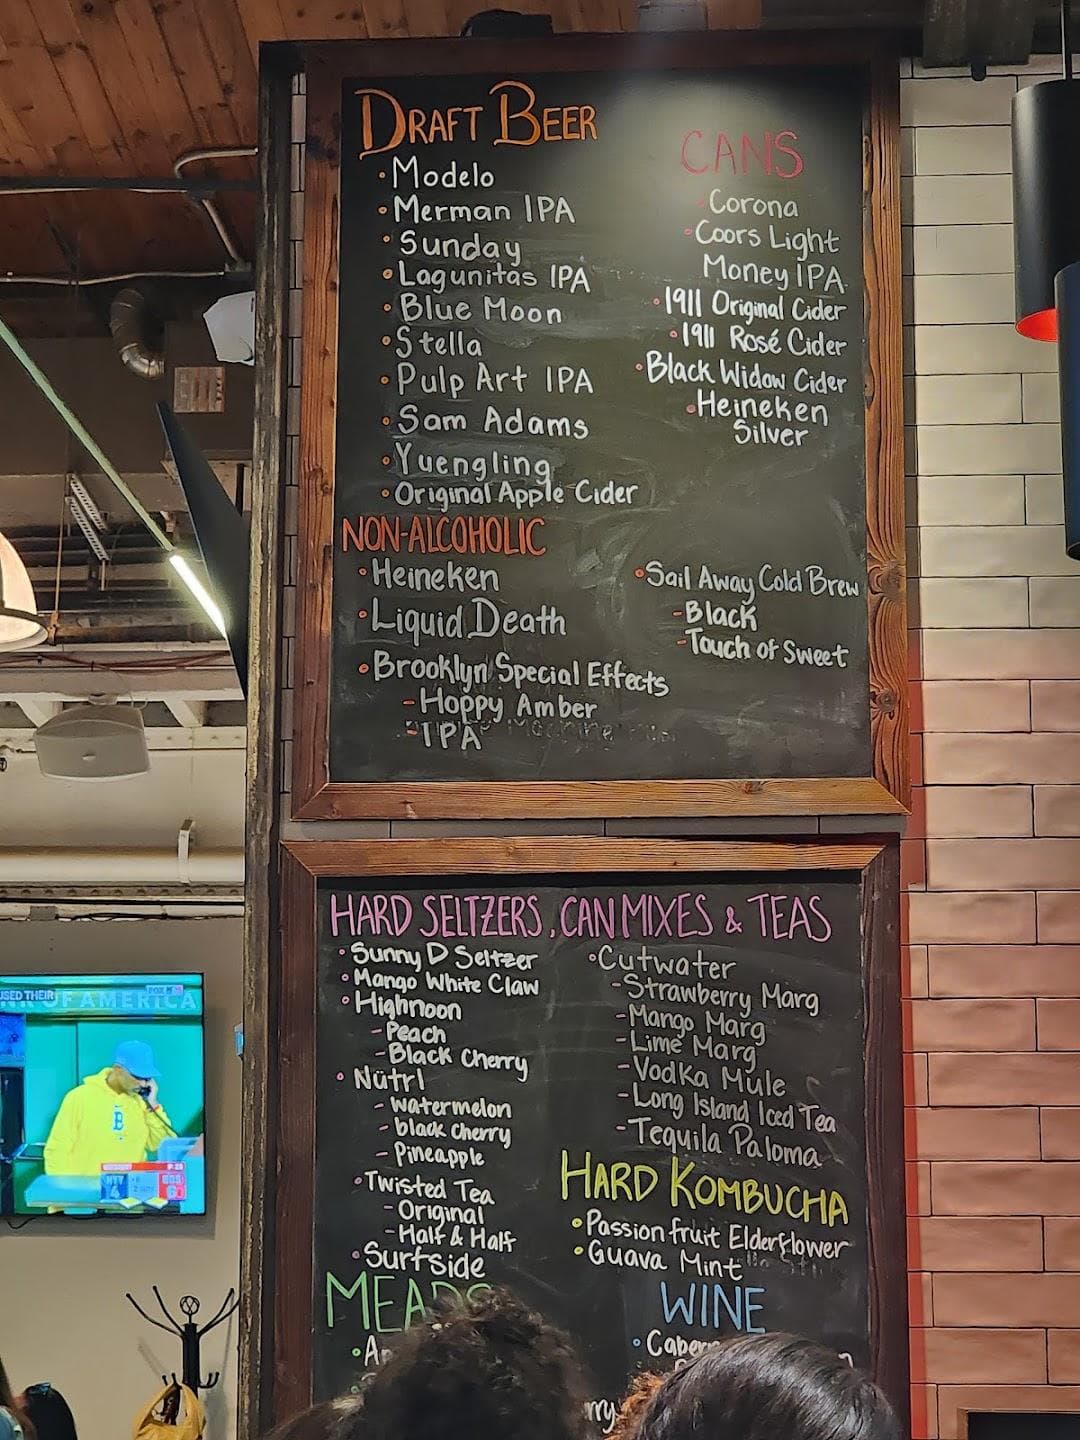 DRAFT BEER
Modelo
Merman IPA
Sunday
Lagunitas IPA
Blue Moon
Stella
Pulp Art IPA
Sam Adams
Yuengling
Original Apple Cider
CANS
Corona
Coors Light
Money IPA
1911 Original Cider
1911 Rosé Cider
Black Widow Cider
Heineken
Silver
NON-ALCOHOLIC
Heineken
Liquid Death
Brooklyn Special Effects
- Hoppy Amber
- IPA
Sail Away Cold Brew
- Black
- Touch of Sweet
HARD SELTZERS, CAN MIXES & TEAS
Sunny D Seltzer
Mango White Claw
Highnoon
- Peach
- Black Cherry
Nütrl
- watermelon
- black cherry
- Pineapple
Twisted Tea
- Original
- Half & Half
Surfside
Cutwater
- Strawberry Marg
- Mango Marg
- Lime Marg
- Vodka Mule
- Long Island Iced Tea
- Tequila Paloma
HARD KOMBUCHA
Passionfruit Elderflower
Guava Mint
MEADS
WINE
USED THEIR
OF AMERICA
B